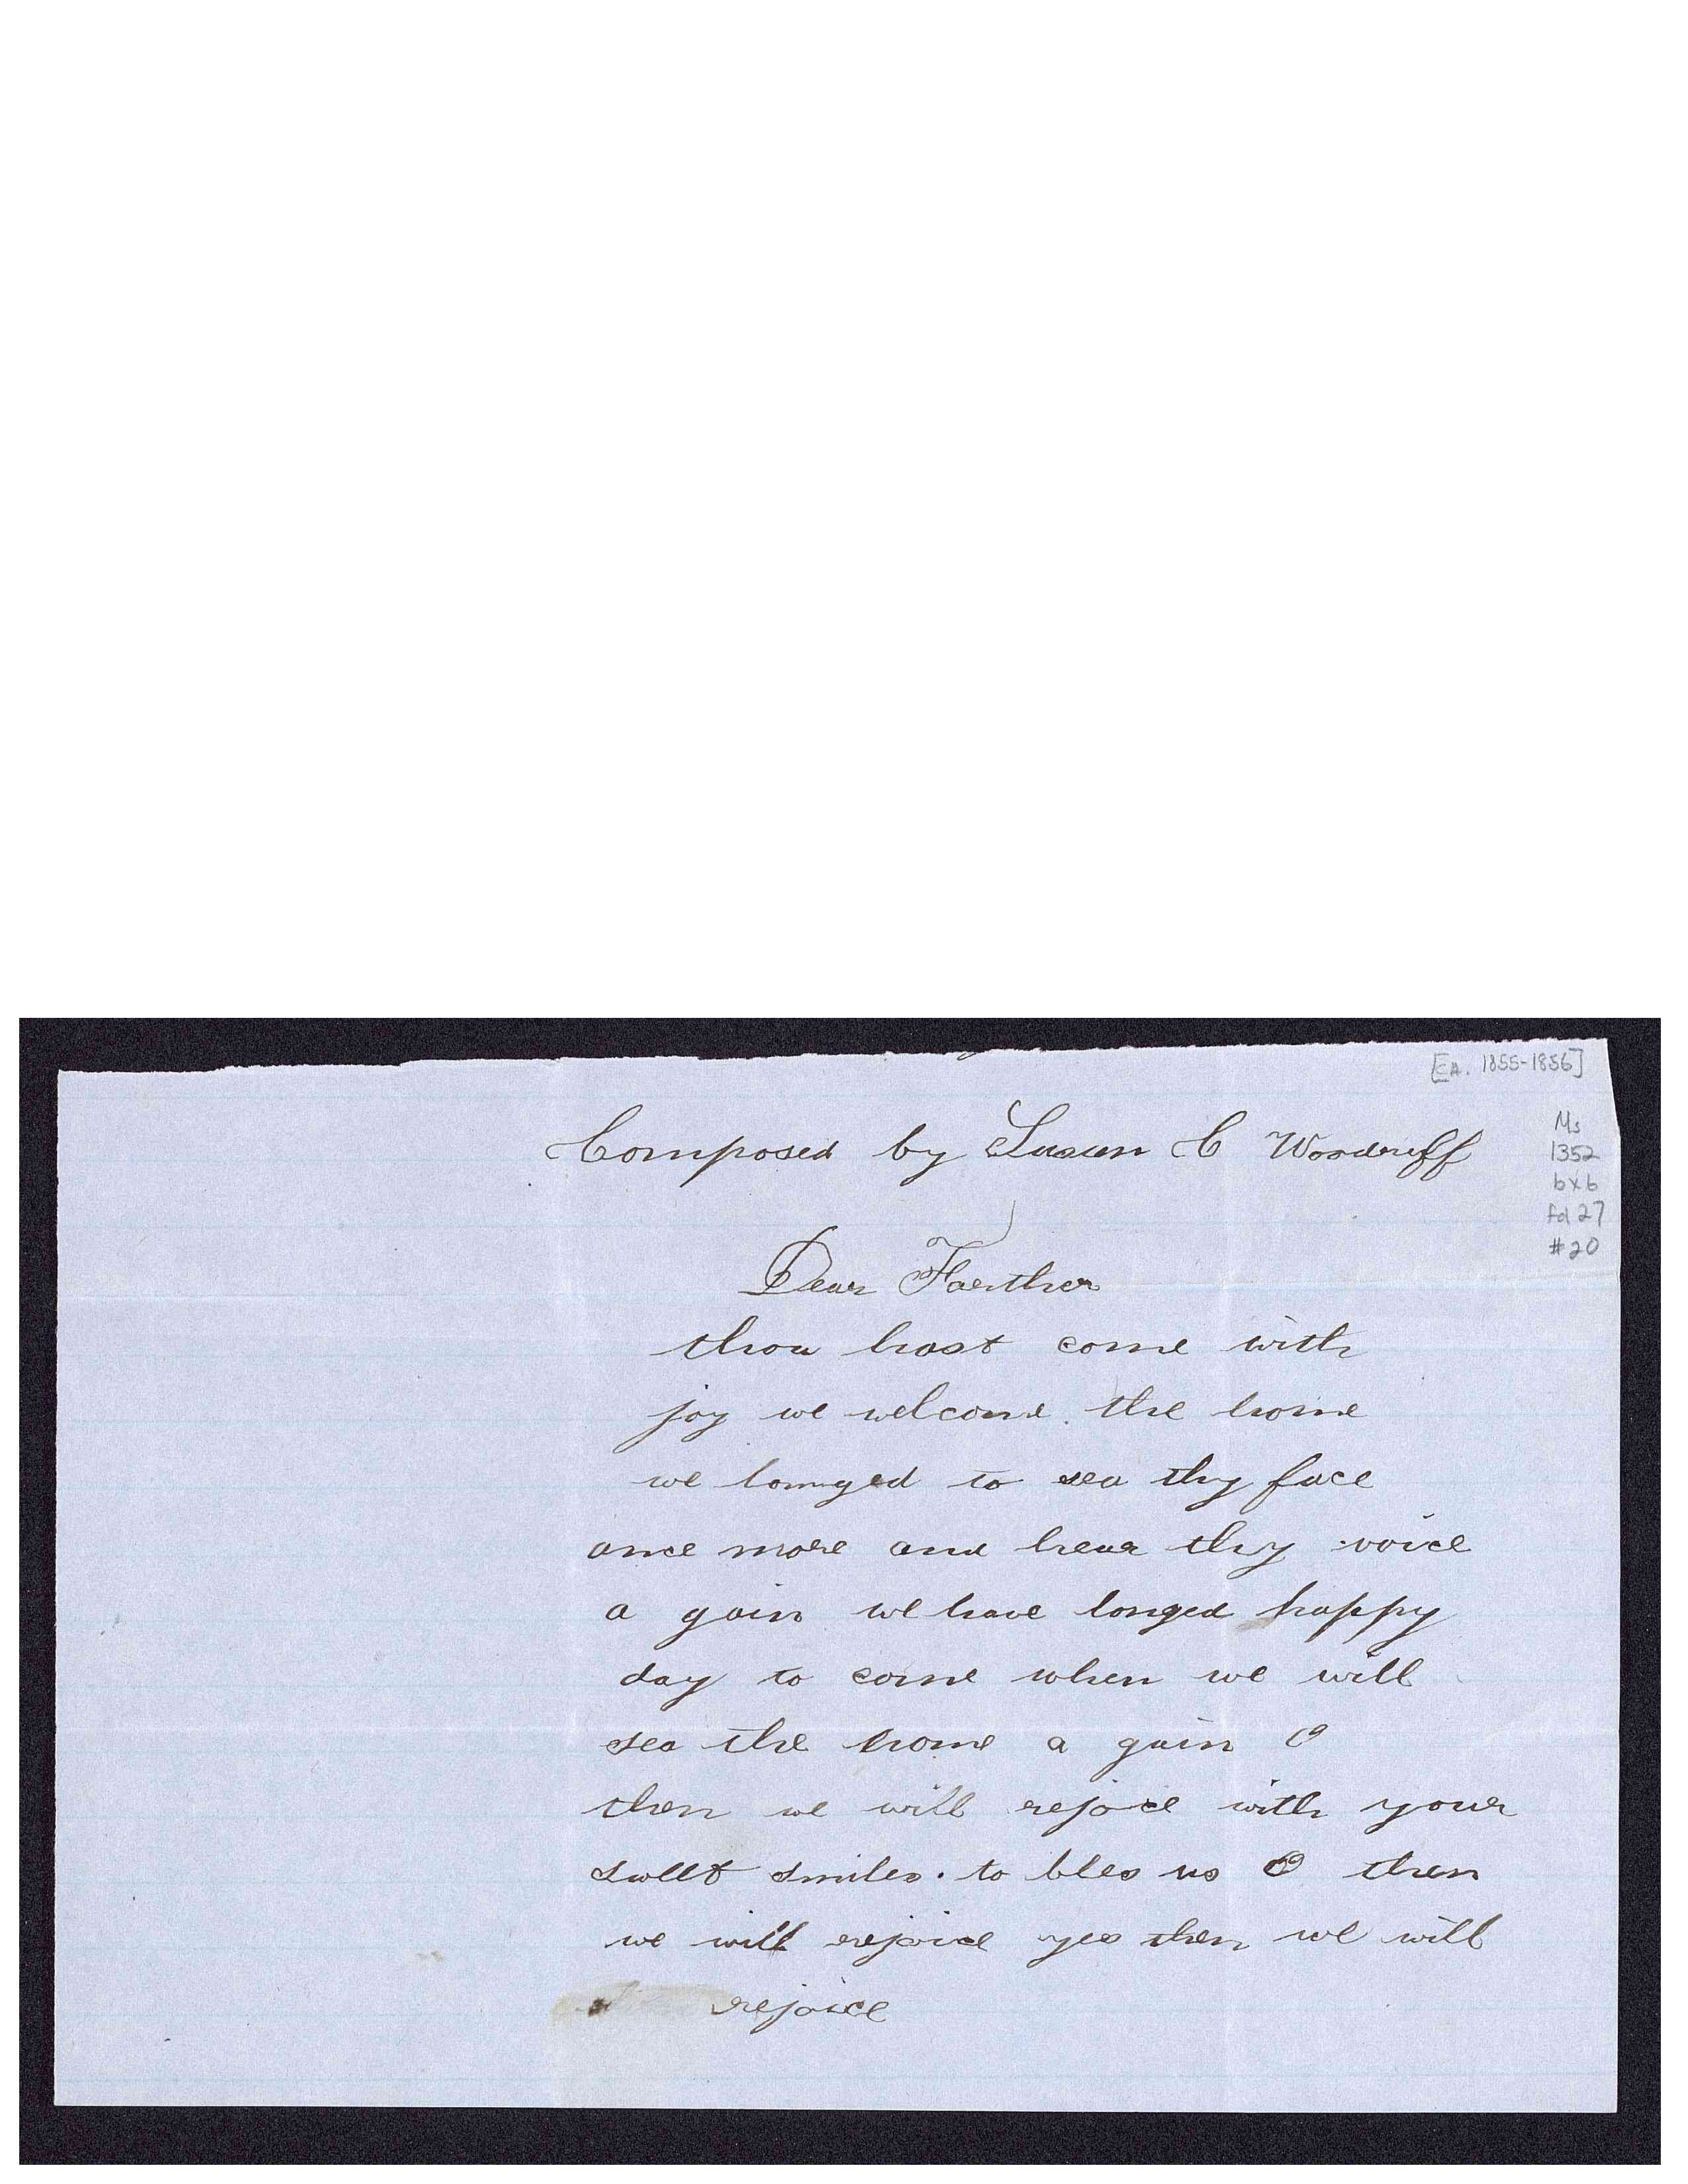 [CA. 1855-1856]
Ms
1352
bx 6
fd 27
#20
Composed by Susan C Woodruff
Dear Farther
thou hast come with
joy we welcome. the home
we lounged to sea thy face
once more and hear thy voice
a gain we have longed happy
day to come when we will
sea the home a gain O
then we will rejoice with your
sweet smiles. to bles us O then
we will rejoice yes then we will
rejoice